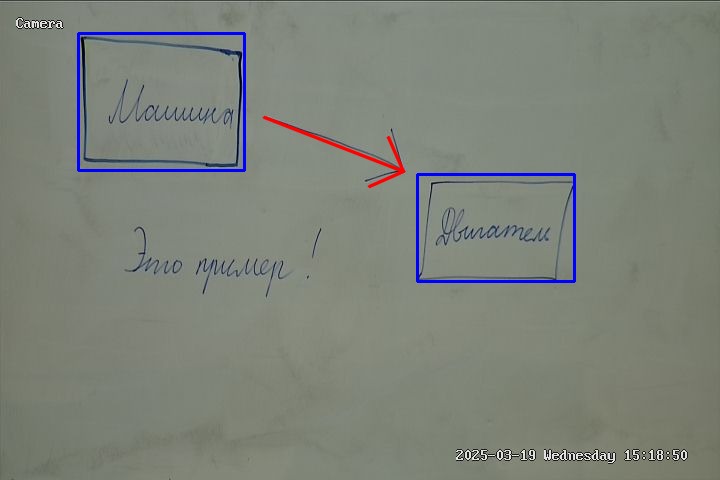 Camera
Машина
Двигатель
Это пример!
2025-03-19 Wednesday 15:18:50